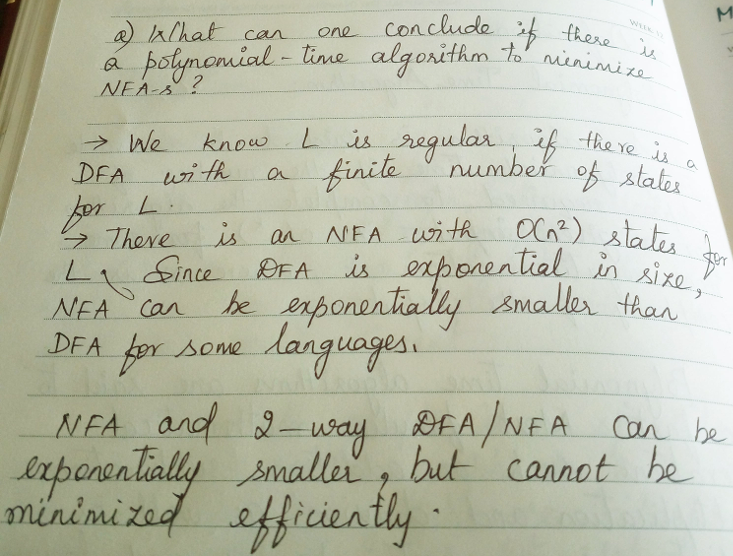 Q) What can one conclude if there is
a polynomial-time algorithm to minimize
NFA-s ?
→ We know L is regular, if there is a
DFA with a finite number of states
for L.
→ There is an NFA with O(n²) states for
L. Since DFA is exponential in size,
NFA can be exponentially smaller than
DFA for some languages.
NFA and 2-way DFA/NFA can be
exponentially smaller, but cannot be
minimized efficiently.